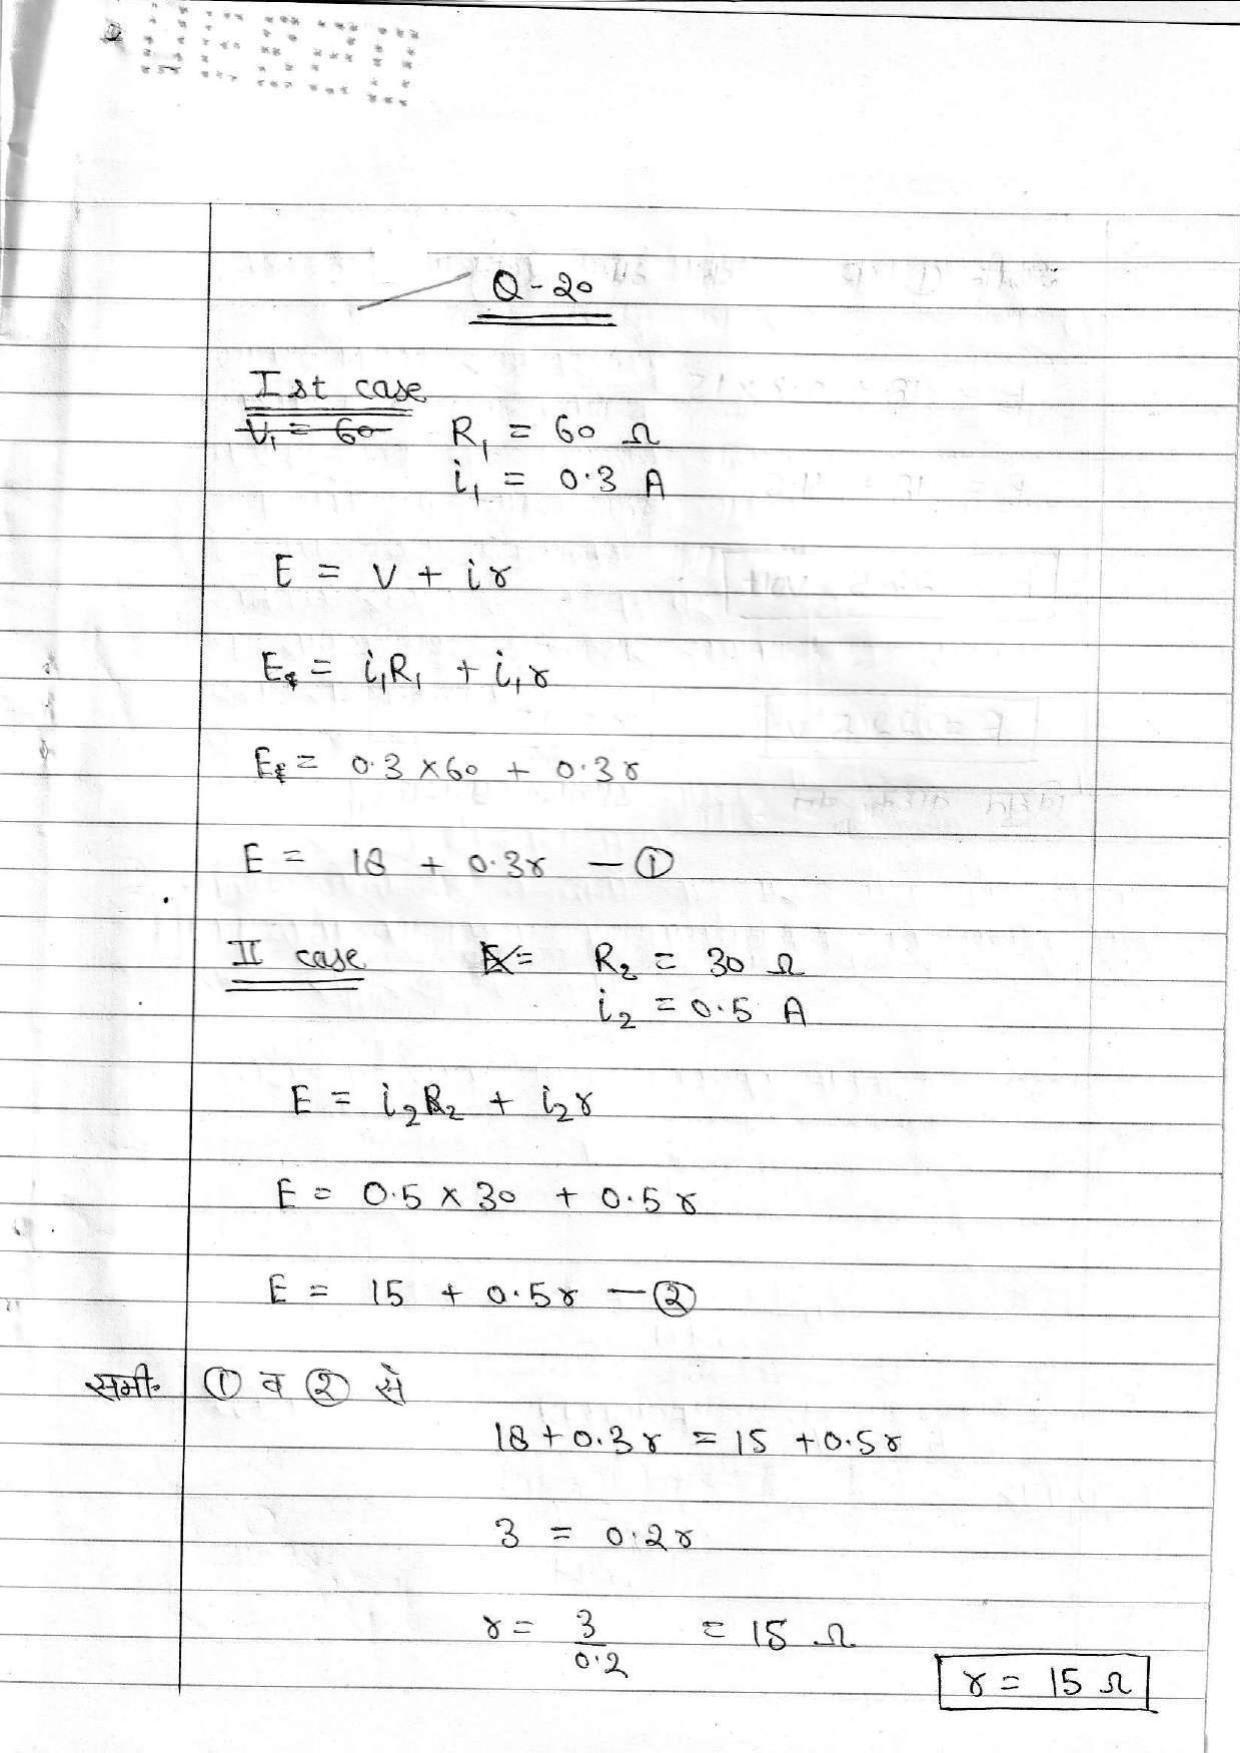 Q-20
Ist case
V₁ = 60 R₁ = 60 Ω
i₁ = 0.3 A
E = V + ir
E = i₁R₁ + i₁r
E = 0.3 × 60 + 0.3r
E = 18 + 0.3r — ①
II case E = R₂ = 30 Ω
i₂ = 0.5 A
E = i₂R₂ + i₂r
E = 0.5 × 30 + 0.5r
E = 15 + 0.5r — ②
समी० ① व ② से
18 + 0.3r = 15 + 0.5r
3 = 0.2r
r = 3/0.2 = 15 Ω
r = 15 Ω